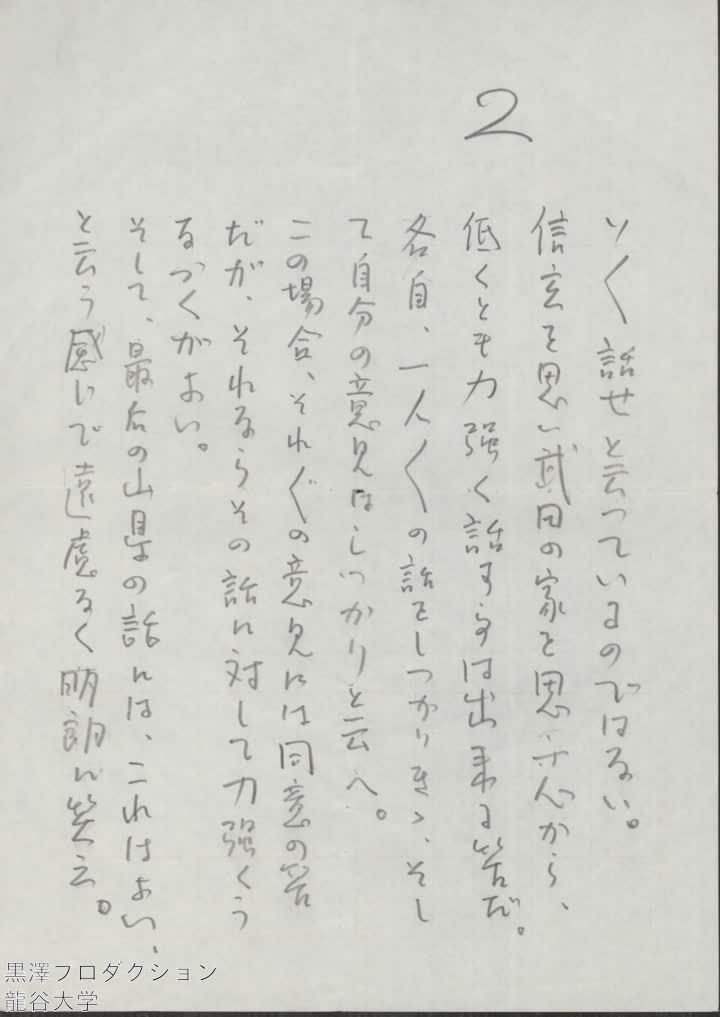 2
りく話せと云っているのではない。
信玄を思い武田の家を思ふ心から、
低くとも力強く話す事は出来る筈だ。
各自、一人〱の話をしっかりきゝ、そし
て自分の意見はしっかりと云へ。
この場合、それ〲の意見には同意の筈
だが、それならその話に対して力強くう
なづくがよい。
そして、最后の山県の話には、これはよい、
と云う感じで遠慮なく明朗に笑ふ。
黒澤プロダクション
龍谷大学